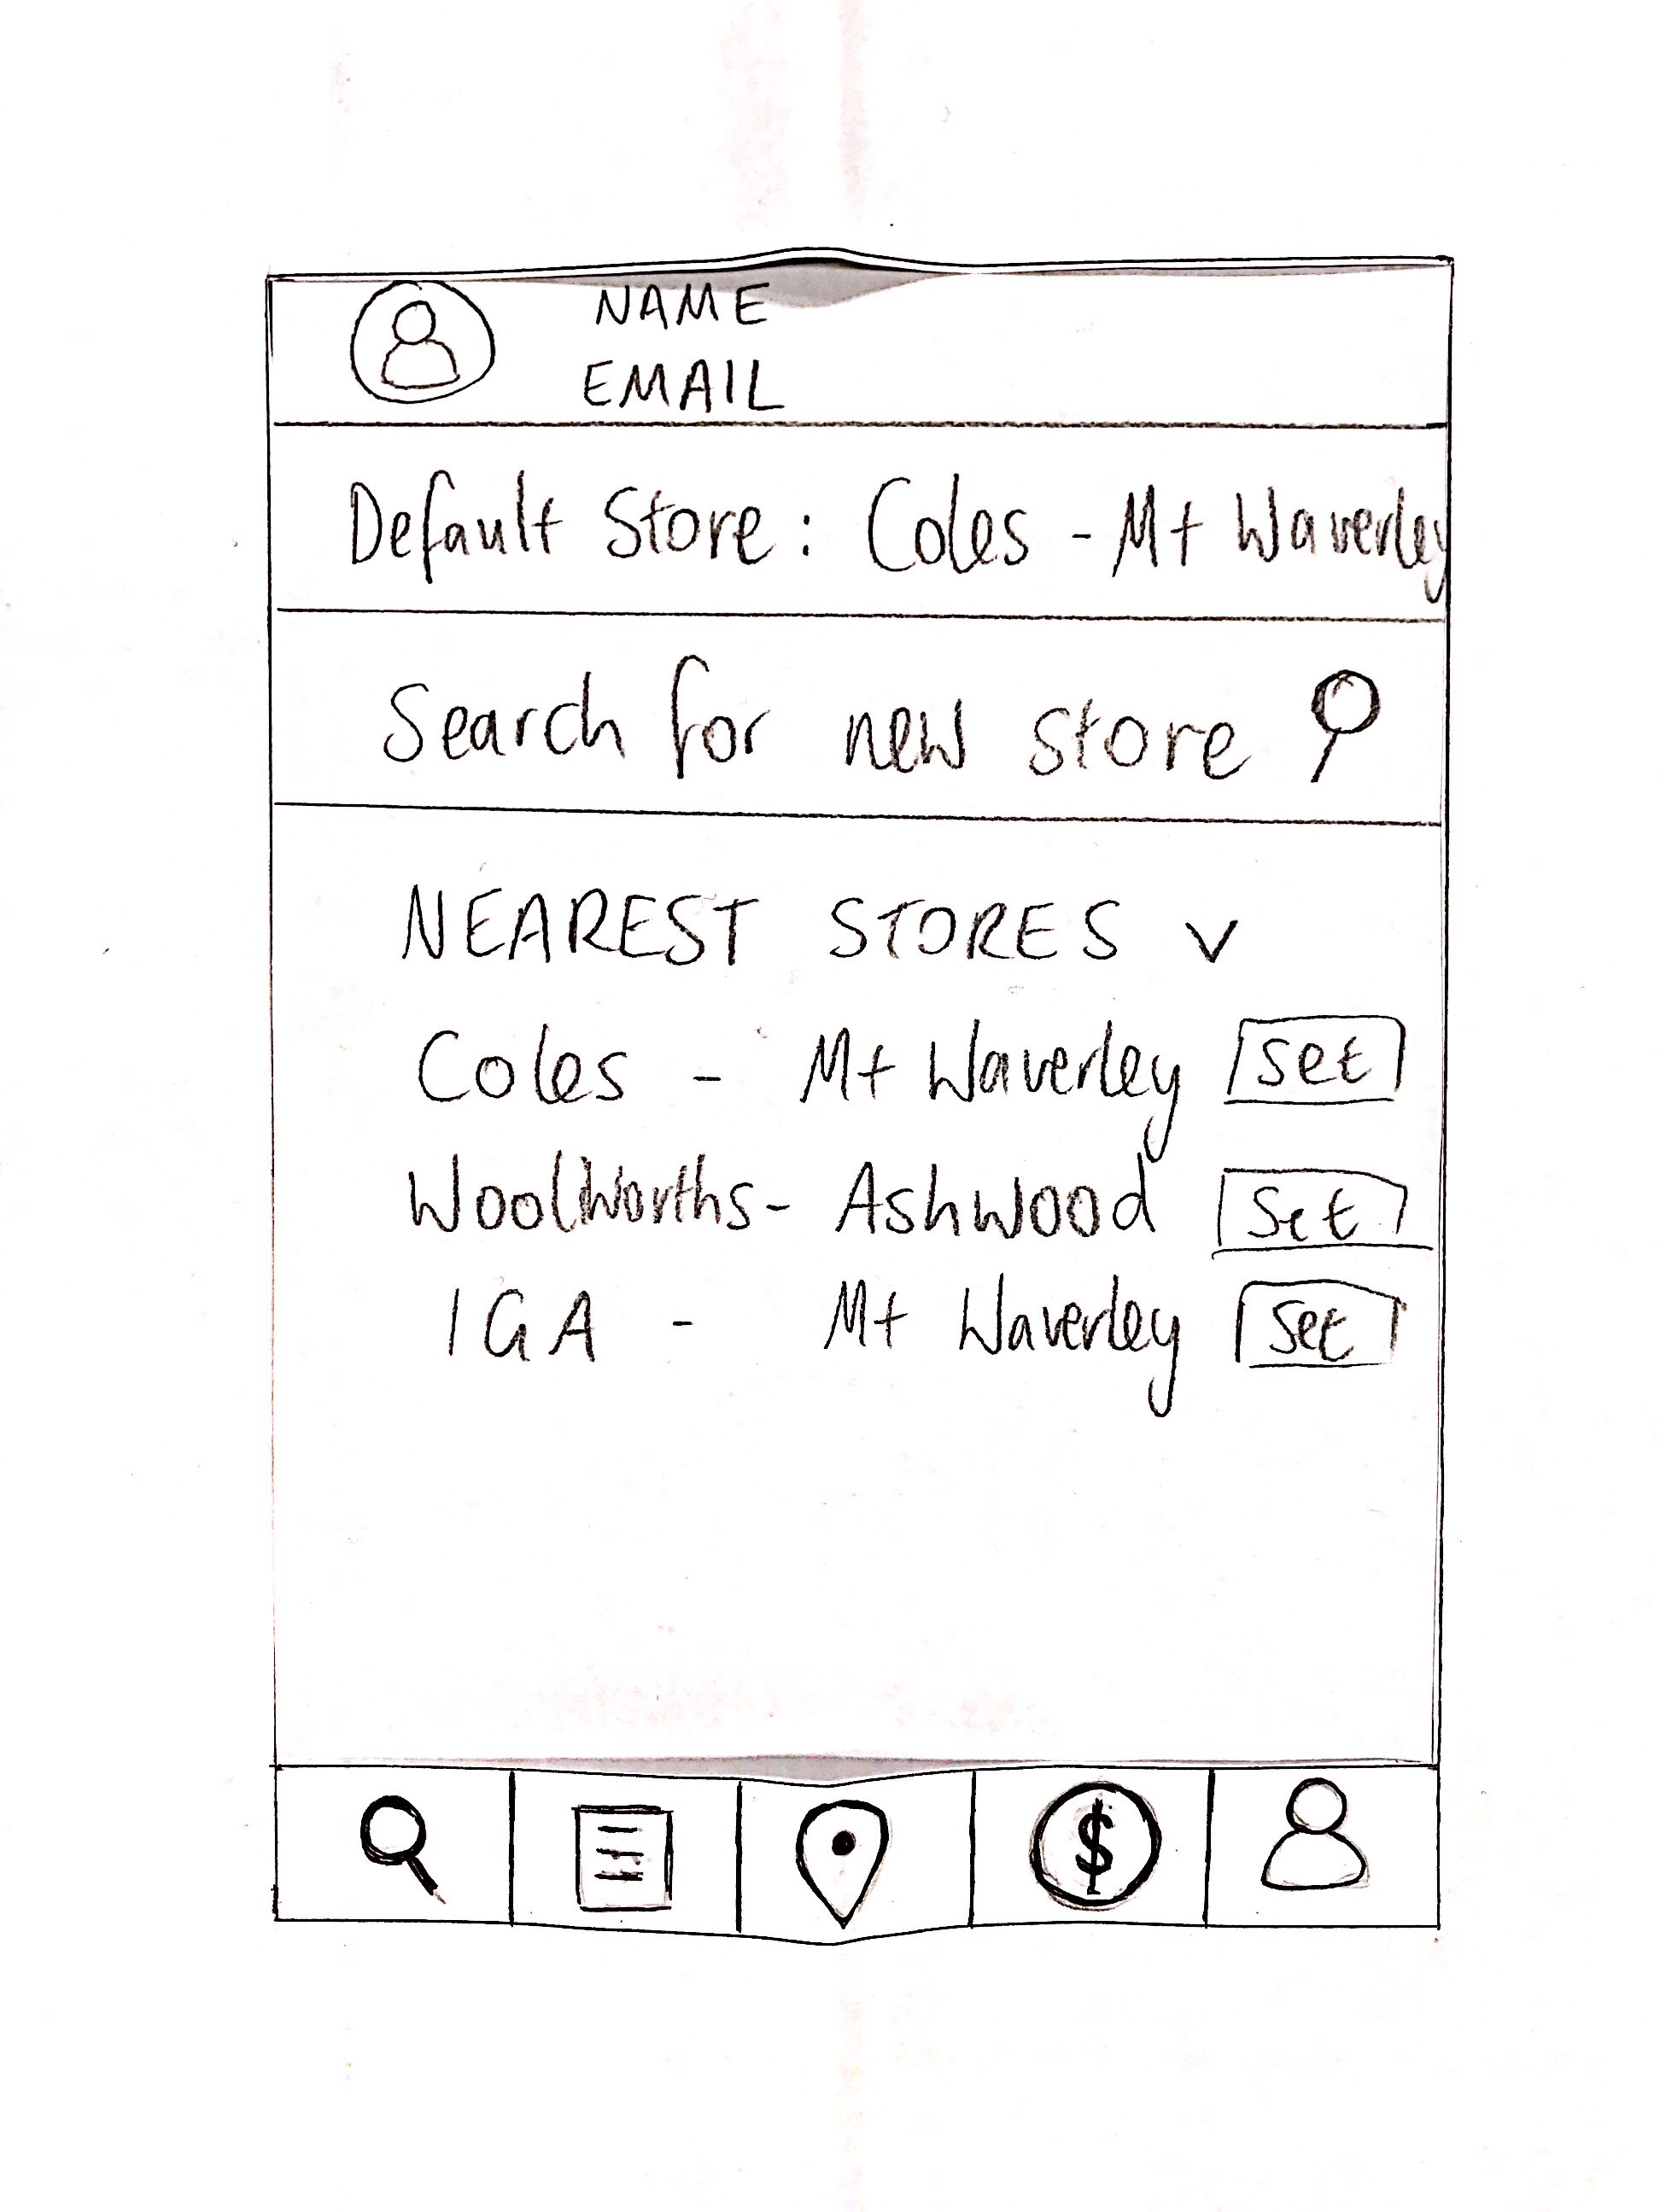 NAME
EMAIL
Default Store: Coles - Mt Waverley
Search for new store
NEAREST STORES v
Coles - Mt Waverley Set
Woolworths- Ashwood Set
IGA - Mt Waverley Set
$